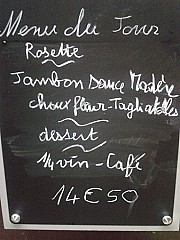 Menu du Jour
Rosette
Jambon Sauce Madère
choux fleur-Tagliatelles
dessert
1/4 vin - Café
14€50